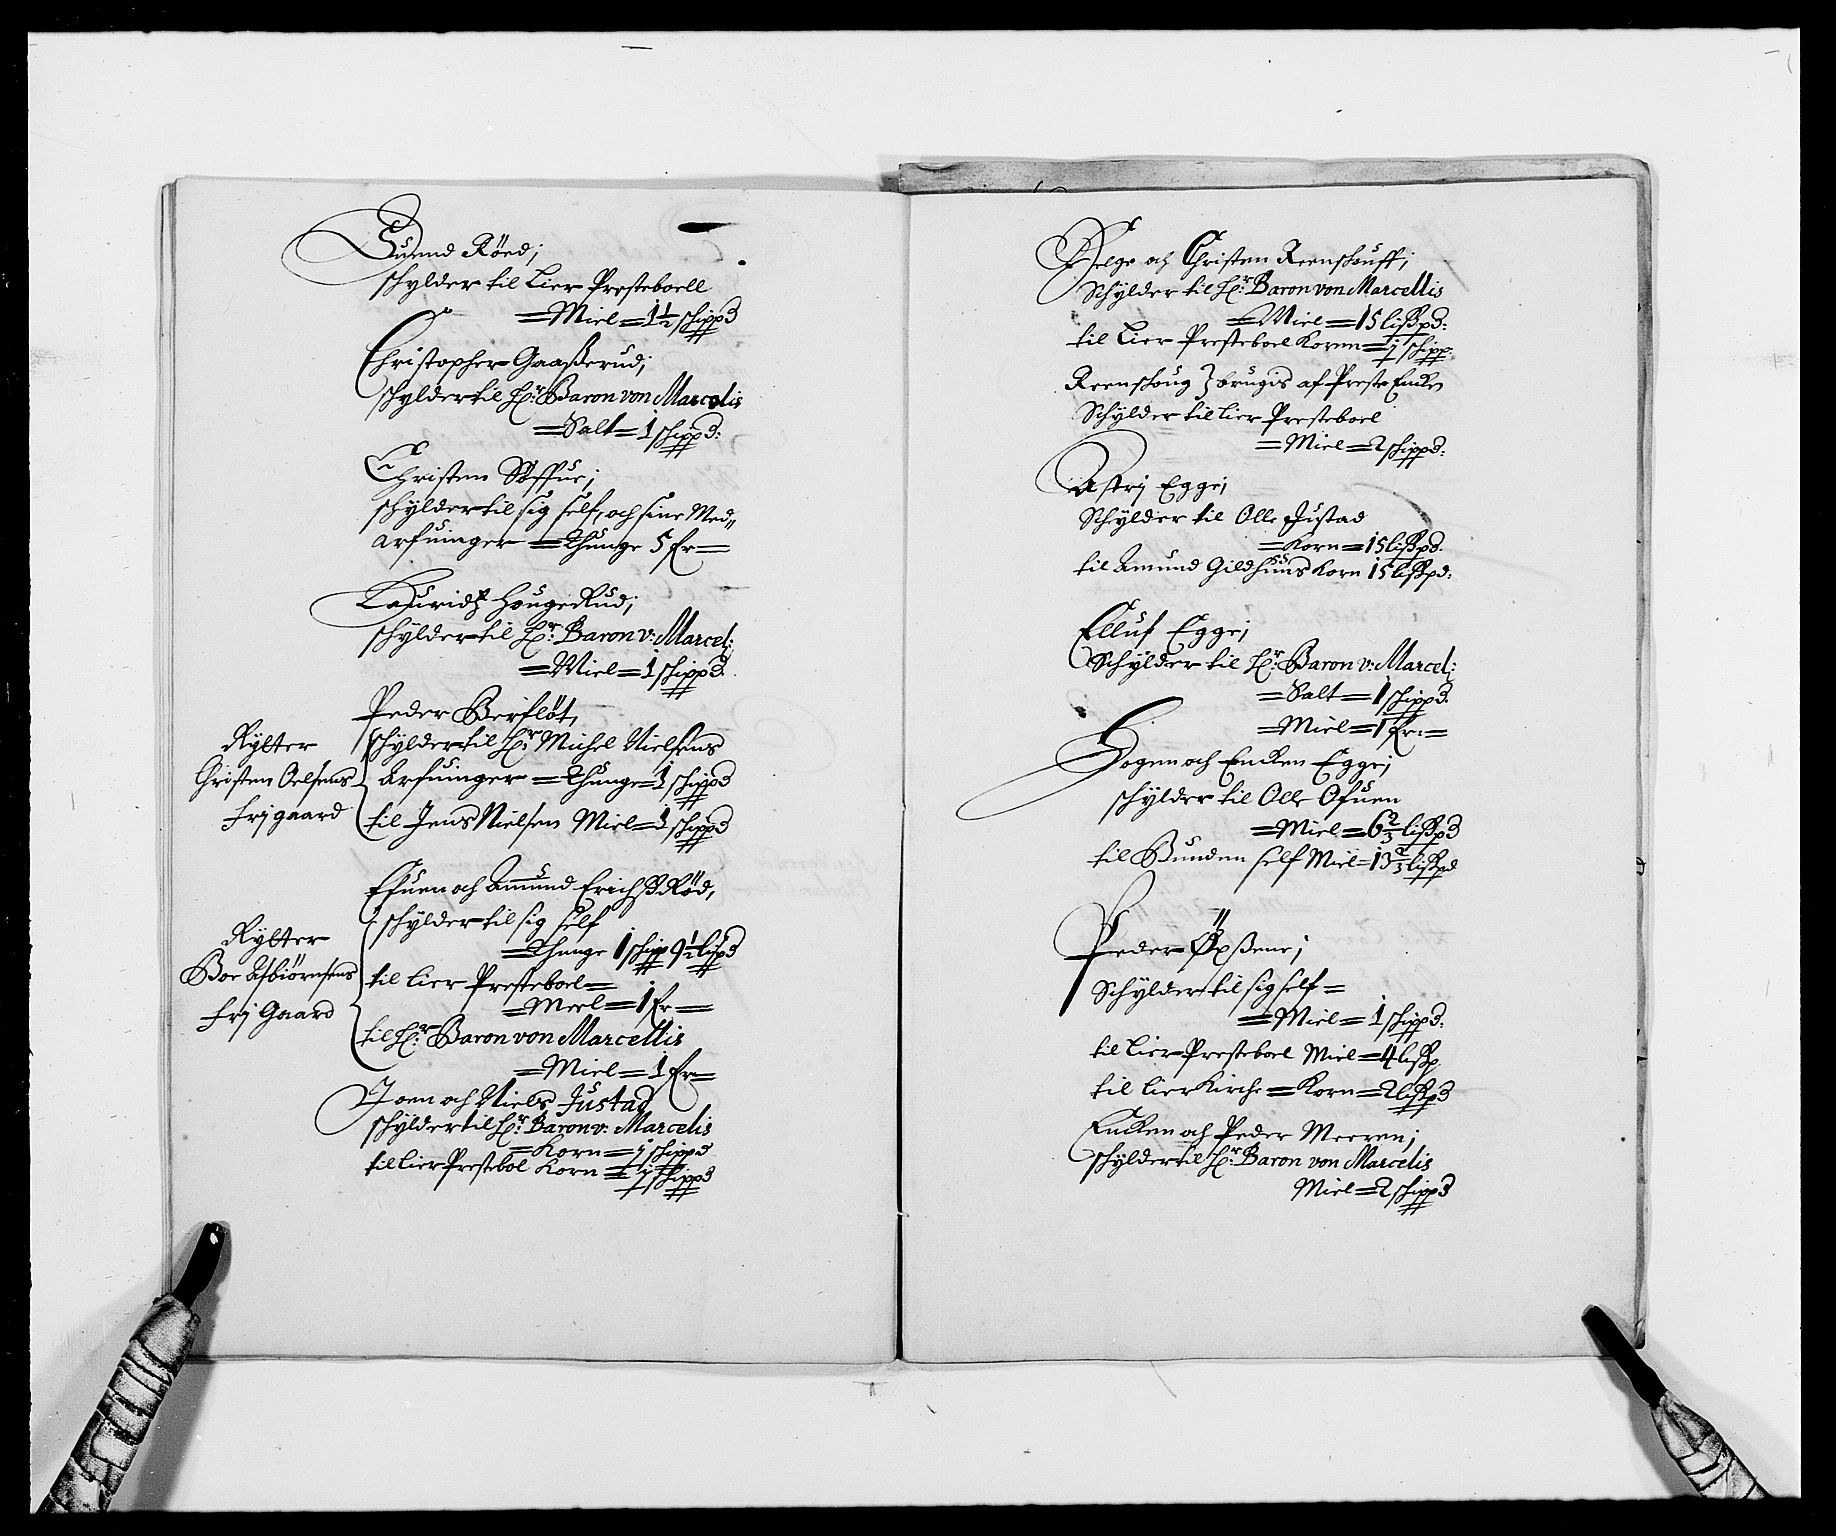 Suend Röed;
schylder til Lier Presteboell
=Miel=1½ schippd
Christopher Gaaßerud;
schylder til Hr: Baron von Marcelis
=Salt=1 schippd:
Christen Söffue;
schylder til sig self, och sine Med„
arfuinger =Thunge 5 Fr=
Lauridtz HougeRud;
schylder til Hr: Baron v: Marcel:
=Miel=1 schippd.
Peder Berflöt,
schylder til Hr: Michel Nielsens
Arfuinger =Thunge=1 schippd
til Jens Nielsen Miel=1 schippd
Rytter
Christen Oelsens
Frj gaard
Efuen och Amund Erichß Röd,
schylder til sig self
=Thunge 1 schipp 9½ lispd
til Lier Presteboel=
=Meel=1 Fr=
til Hr: Baron von Marcellis
=Miel=1 Fr=
Rytter
Boe Asbiörnsens
Frj Gaard
Joen och Niels Justad
schylder til Hr: Baron v: Marcelis
=Korn=½ schippd
til Lier Prestebol Korn=½ schippd
Helge och Christen Reenschouff;
Schylder til Hr: Baron von Marcellis
=Miel=15 lißpd:
til Lier Presteboel Korn=½ schipp.
Reenschoug brugis af Preste Encken
Schylder til Lier Presteboel
=Miel=2 schippd:
Astrj Egge;
Schylder til Olle Justad
=Korn=15 lißpd.
til Amund Gildhuus Korn 15 lißpd:
Elluf Egge;
Schylder til Hr: Baron v: Marcel:
=Salt=1 schippd.
=Miel=1 Fr:=
Hogen och Encken Egge;
schylder til Olle Ofuen
=Miel=6⅔ lißpd
til Bunden self Miel=13⅔ lißpd
Peder Öxßene;
Schylder til sig self=
=Miel=1 schippd:
til Lier Presteboel Miel=4 lißp.
til Lier Kirche=Korn=2 lißpd
Encken och Peder Meeren;
schylder til Hr: Baron von Marcelis
Miel=2 schippd